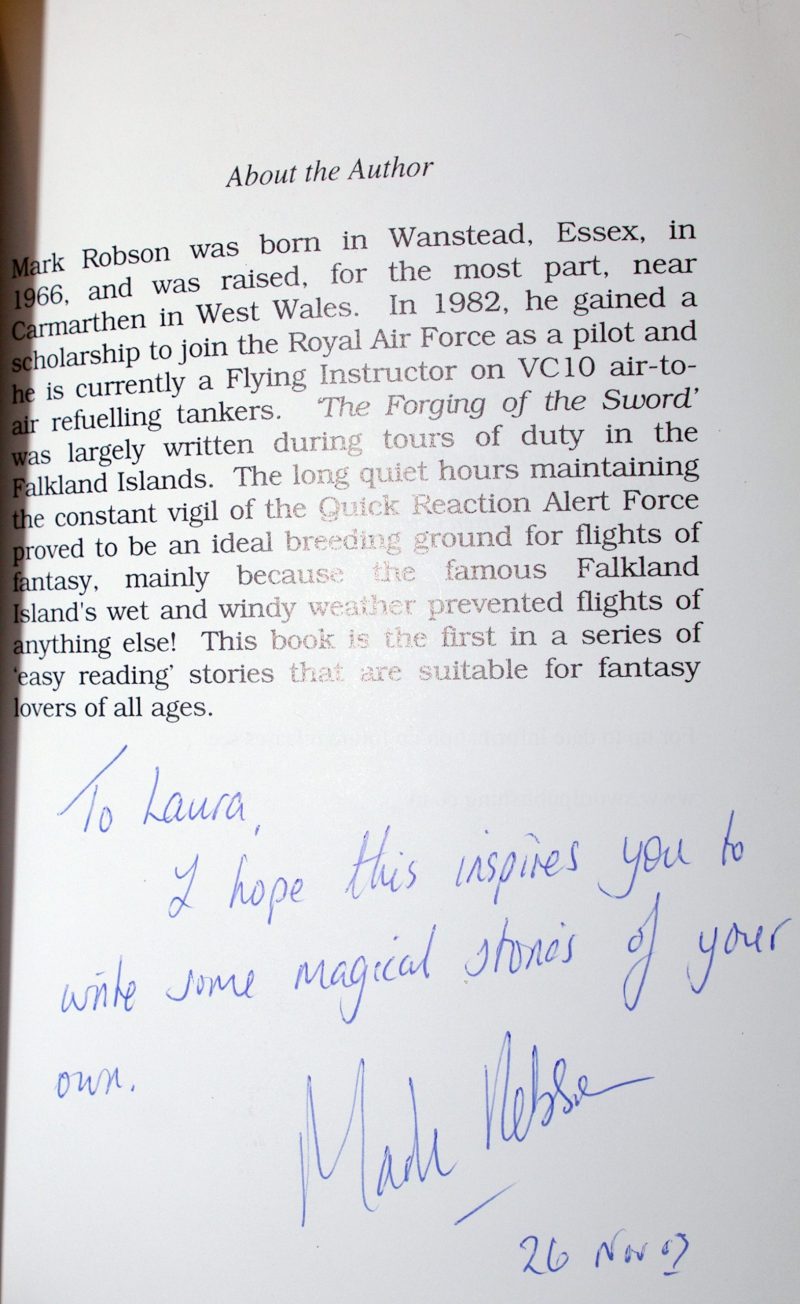 About the Author
Mark Robson was born in Wanstead, Essex, in
1966, and was raised, for the most part, near
Carmarthen in West Wales. In 1982, he gained a
scholarship to join the Royal Air Force as a pilot and
he is currently a Flying Instructor on VC10 air-to-
air refuelling tankers. 'The Forging of the Sword'
was largely written during tours of duty in the
Falkland Islands. The long quiet hours maintaining
the constant vigil of the Quick Reaction Alert Force
proved to be an ideal breeding ground for flights of
fantasy, mainly because the famous Falkland
Island's wet and windy weather prevented flights of
anything else! This book is the first in a series of
'easy reading' stories that are suitable for fantasy
lovers of all ages.
To Laura,
I hope this inspires you to
write some magical stories of your
own.
Mark Robson
26 Nov 07